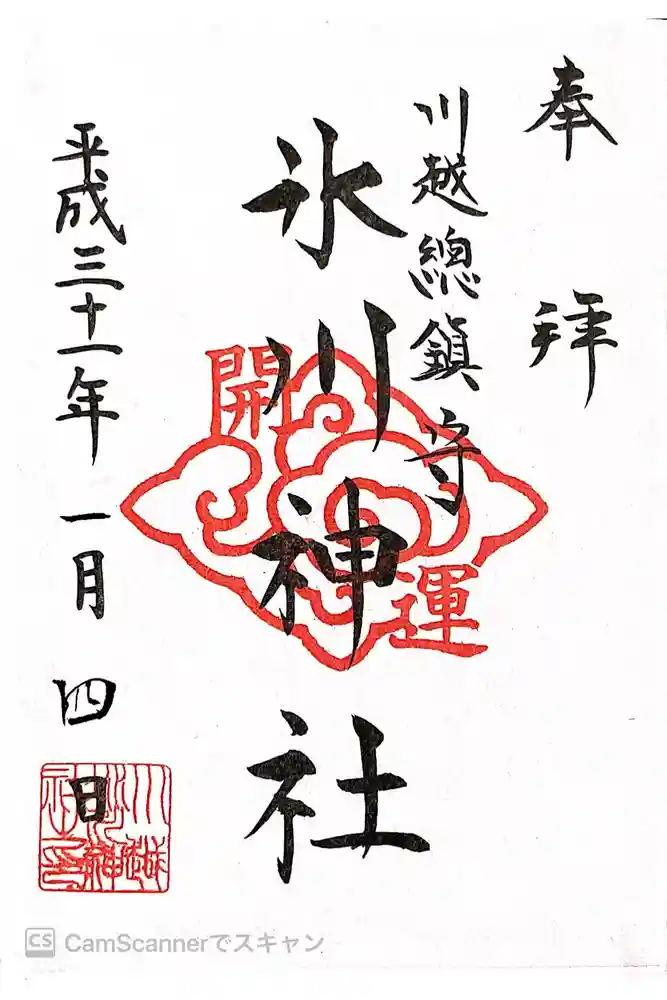 奉拝
川越總鎮守
氷川神社
開運
平成三十一年一月四日
川越氷川神社之印
CS CamScannerでスキャン